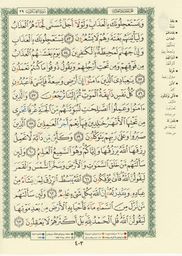 وَيَسْتَعْجِلُونَكَ بِٱلْعَذَابِ وَلَوْلَآ أَجَلٌ مُّسَمًّى لَّجَآءَهُمُ ٱلْعَذَابُ
وَلَيَأْتِيَنَّهُم بَغْتَةً وَهُمْ لَا يَشْعُرُونَ ٥٣ يَسْتَعْجِلُونَكَ بِٱلْعَذَابِ
وَإِنَّ جَهَنَّمَ لَمُحِيطَةٌۢ بِٱلْكَٰفِرِينَ ٥٤ يَوْمَ يَغْشَىٰهُمُ ٱلْعَذَابُ
مِن فَوْقِهِمْ وَمِن تَحْتِ أَرْجُلِهِمْ وَيَقُولُ ذُوقُوا۟ مَا كُنتُمْ تَعْمَلُونَ
٥٥ يَٰعِبَادِىَ ٱلَّذِينَ ءَامَنُوٓا۟ إِنَّ أَرْضِى وَٰسِعَةٌ فَإِيَّٰىَ فَٱعْبُدُونِ
٥٦ كُلُّ نَفْسٍ ذَآئِقَةُ ٱلْمَوْتِ ثُمَّ إِلَيْنَا تُرْجَعُونَ ٥٧ وَٱلَّذِينَ
ءَامَنُوا۟ وَعَمِلُوا۟ ٱلصَّٰلِحَٰتِ لَنُبَوِّئَنَّهُم مِّنَ ٱلْجَنَّةِ غُرَفًا تَجْرِى
مِن تَحْتِهَا ٱلْأَنْهَٰرُ خَٰلِدِينَ فِيهَا نِعْمَ أَجْرُ ٱلْعَٰمِلِينَ ٥٨ ٱلَّذِينَ
صَبَرُوا۟ وَعَلَىٰ رَبِّهِمْ يَتَوَكَّلُونَ ٥٩ وَكَأَيِّن مِّن دَآبَّةٍ لَّا تَحْمِلُ
رِزْقَهَا ٱللَّهُ يَرْزُقُهَا وَإِيَّاكُمْ وَهُوَ ٱلسَّمِيعُ ٱلْعَلِيمُ ٦٠ وَلَئِن
سَأَلْتَهُم مَّنْ خَلَقَ ٱلسَّمَٰوَٰتِ وَٱلْأَرْضَ وَسَخَّرَ ٱلشَّمْسَ وَٱلْقَمَرَ
لَيَقُولُنَّ ٱللَّهُ فَأَنَّىٰ يُؤْفَكُونَ ٦١ ٱللَّهُ يَبْسُطُ ٱلرِّزْقَ لِمَن يَشَآءُ مِنْ
عِبَادِهِۦ وَيَقْدِرُ لَهُۥٓ إِنَّ ٱللَّهَ بِكُلِّ شَىْءٍ عَلِيمٌ ٦٢ وَلَئِن سَأَلْتَهُم
مَّن نَّزَّلَ مِنَ ٱلسَّمَآءِ مَآءً فَأَحْيَا بِهِ ٱلْأَرْضَ مِنۢ بَعْدِ مَوْتِهَا
لَيَقُولُنَّ ٱللَّهُ قُلِ ٱلْحَمْدُ لِلَّهِ بَلْ أَكْثَرُهُمْ لَا يَعْقِلُونَ ٦٣
٤٠٣